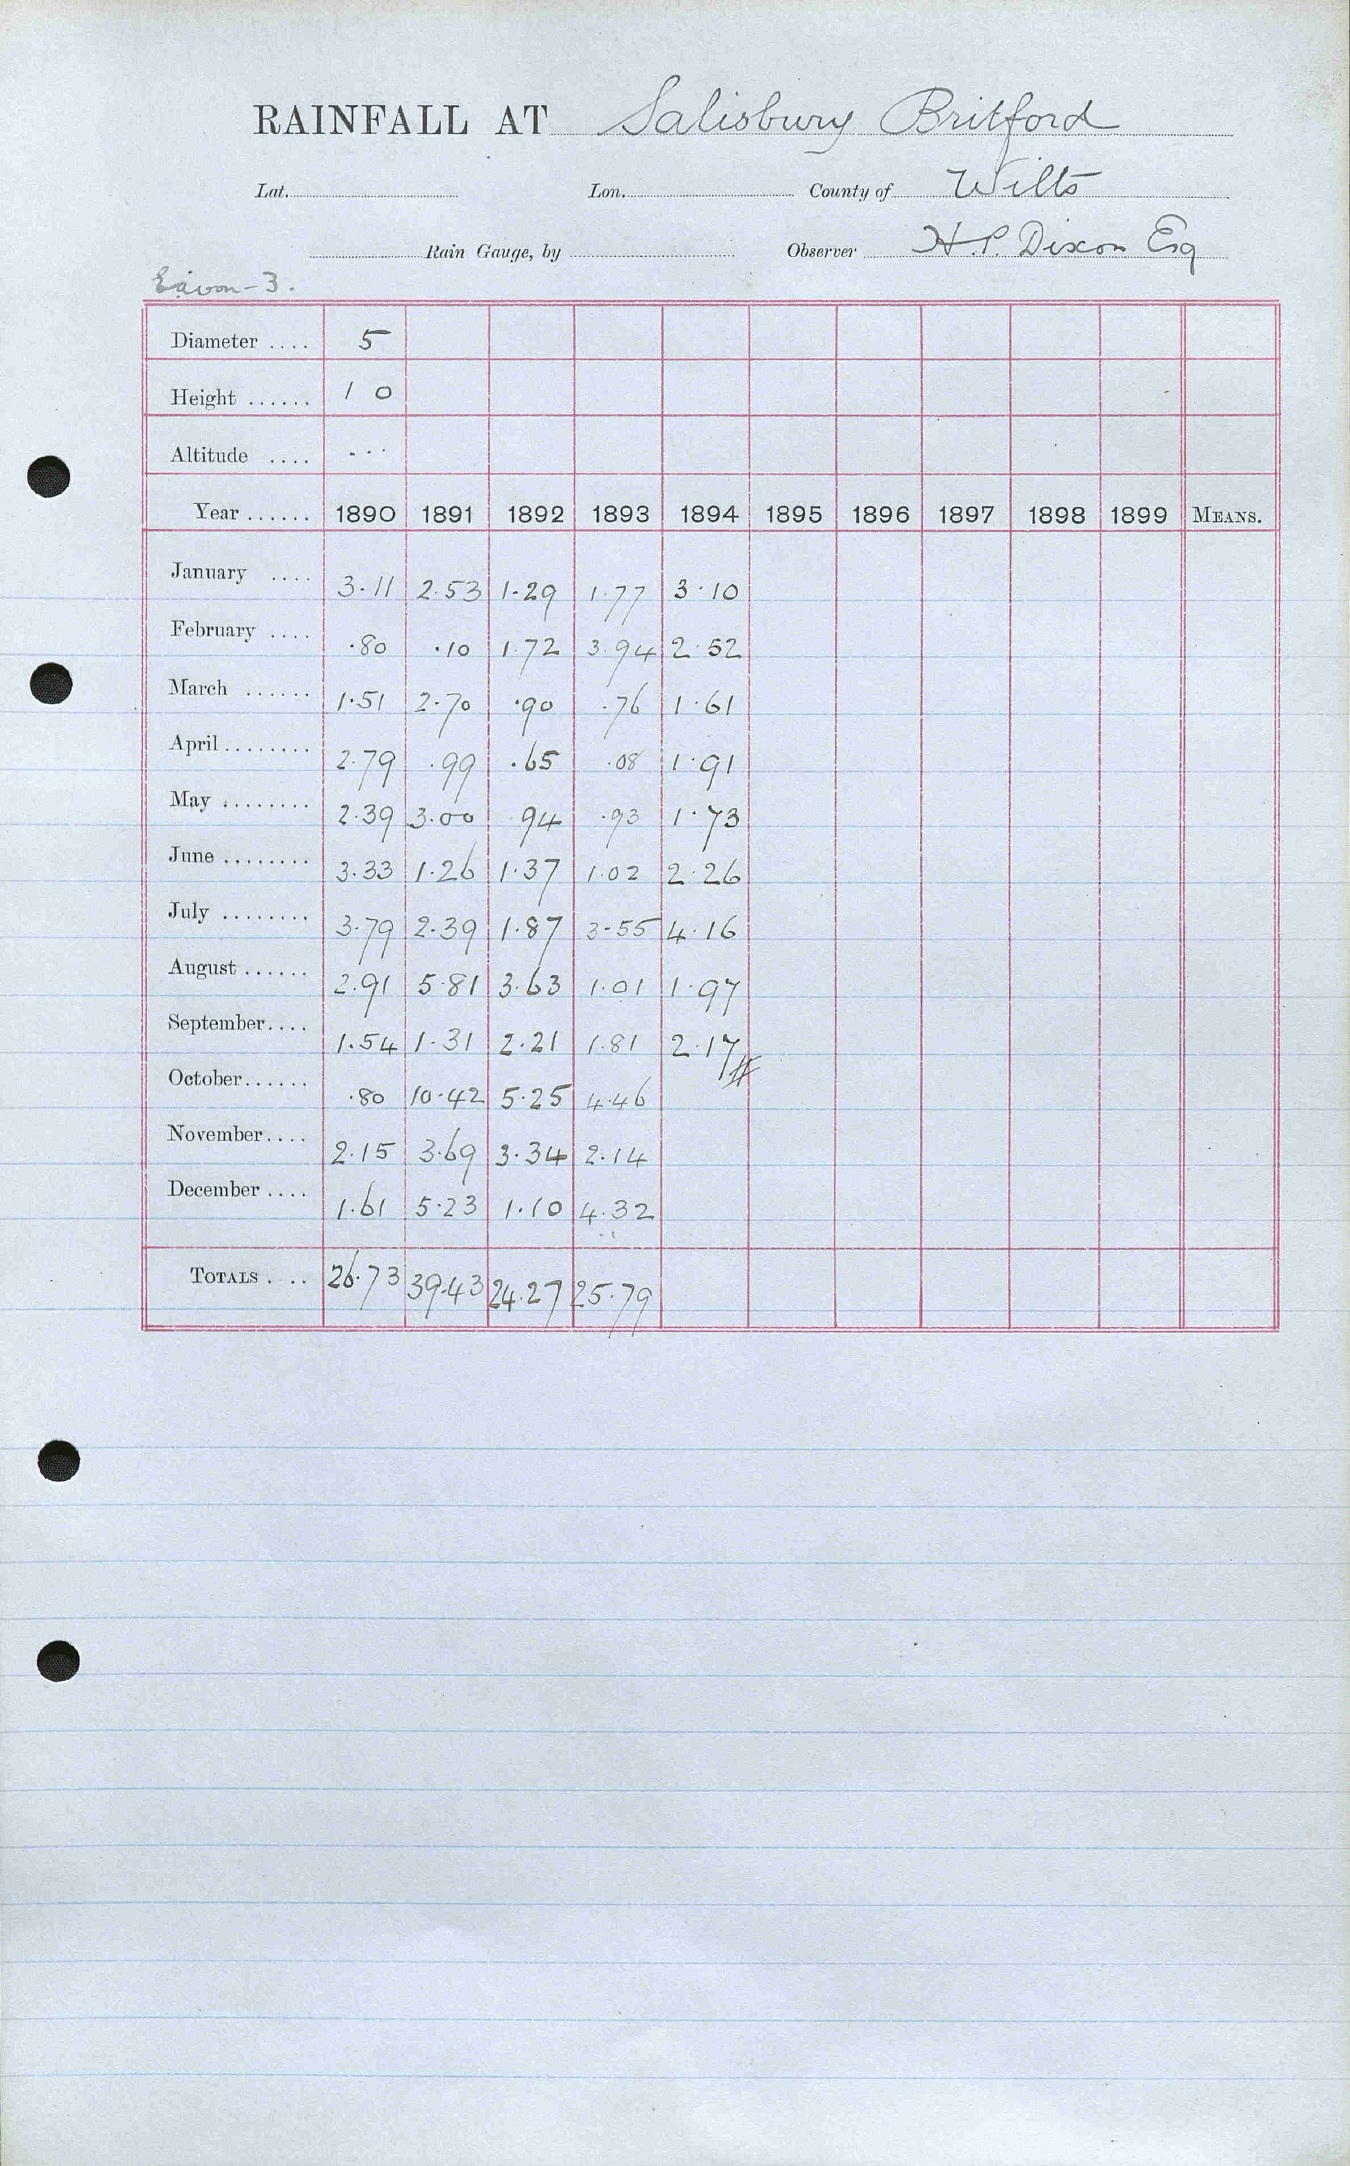 RAINFALL AT Salisbury Britford
Lat. Lon. County of Wilts
Rain Gauge, by Observer H.P. Dixon Esq
Diameter .... 5
Height ...... 1 0
Altitude .... ...
Year ...... 1890 1891 1892 1893 1894 1895 1896 1897 1898 1899 MEANS.
January .... 3.11 2.53 1.29 1.77 3.10
February .... .80 .10 1.72 3.94 2.52
March ...... 1.51 2.70 .90 .76 1.61
April ........ 2.79 .99 .65 .08 1.91
May ........ 2.39 3.00 .94 .93 1.73
June ........ 3.33 1.26 1.37 1.02 2.26
July ........ 3.79 2.39 1.87 3.55 4.16
August ...... 2.91 5.81 3.63 1.01 1.97
September.... 1.54 1.31 2.21 1.81 2.17
October...... .80 10.42 5.25 4.46
November.... 2.15 3.69 3.34 2.14
December .... 1.61 5.23 1.10 4.32
TOTALS . .. 26.73 39.43 24.27 25.79